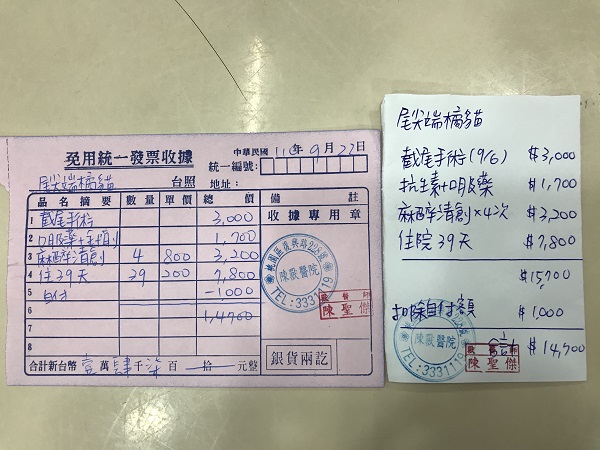 免用統一發票收據
中華民國110年9月27日
統一編號:
尾尖端橘貓 台照 地址:
品名摘要 數量 單價 總價 備註
1 截尾手術 3,000 收據專用章
2 口服藥+針劑 1,700
3 麻醉清創 4 800 3,200
4 住39天 39 200 7,800
5 自付 -1000
6 14,700
7
8
合計新台幣 壹萬肆千柒百 拾 元整
銀貨兩訖
陳歐醫院
TEL:3331119
獸醫師
陳聖傑
尾尖端橘貓
截尾手術(9/6) $3,000
抗生素+口服藥 $1,700
麻醉清創×4次 $3,200
住院39天 $7,800
$15,700
扣除自付額 $1,000
合計 $14,700
陳歐醫院
TEL:3331119
陳聖傑